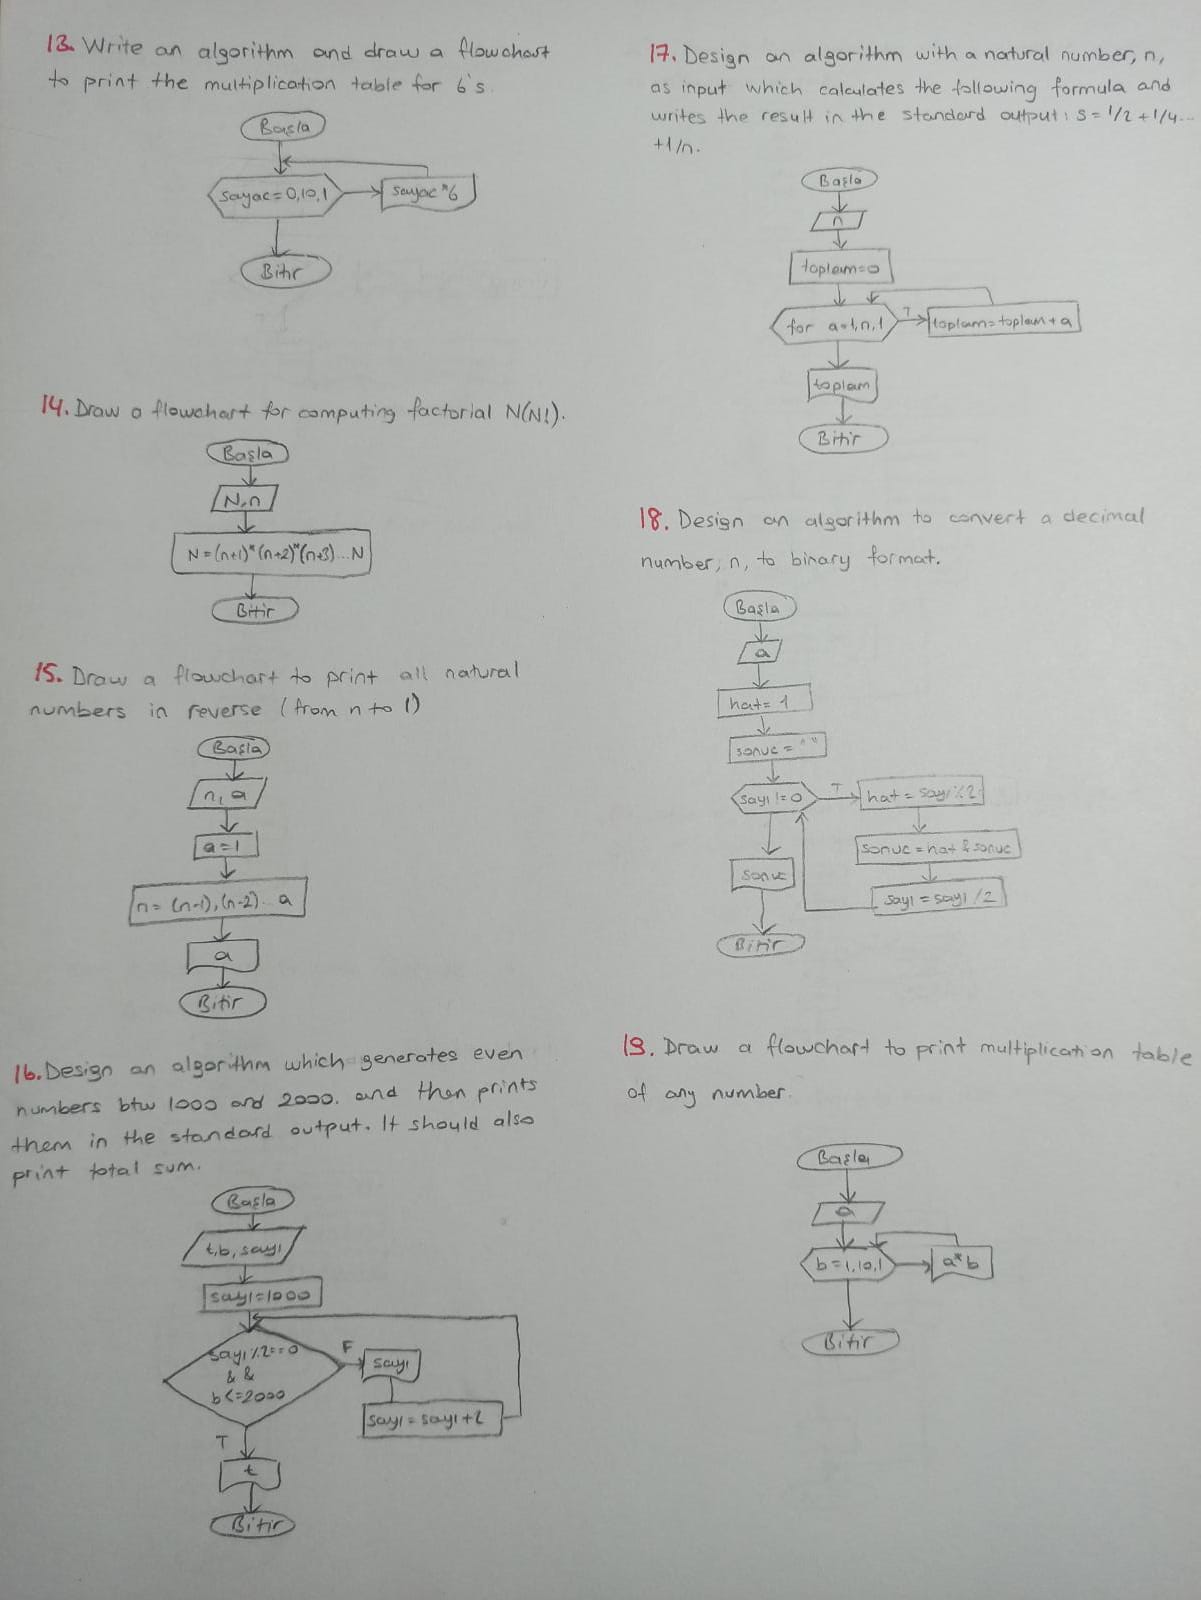 13. Write an algorithm and draw a flowchart
to print the multiplication table for 6's.
Başla
sayac=0,10,1
sayac*6
Bitir
14. Draw a flowchart for computing factorial N(N!).
Başla
N,n
N=(n+1)*(n+2)*(n+3)...N
Bitir
15. Draw a flowchart to print all natural
numbers in reverse (from n to 1)
Başla
n, a
a=1
n= (n-1),(n-2)... a
a
Bitir
16. Design an algorithm which generates even
numbers btw 1000 and 2000. and then prints
them in the standard output. It should also
print total sum.
Başla
t,b, sayı
sayı=1000
sayı%2==0
&&
b<=2000
F
sayı
sayı = sayı+2
T
t
Bitir
17. Design an algorithm with a natural number, n,
as input which calculates the following formula and
writes the result in the standard output: S = 1/2 + 1/4...
+1/n.
Başla
n
toplam=0
for a=1,n,1
T
toplam=toplam+a
toplam
Bitir
18. Design an algorithm to convert a decimal
number, n, to binary format.
Başla
a
hat= 1
sonuc = " "
sayı != 0
T
hat = sayı%2
sonuc = hat & sonuc
sayı = sayı /2
sonuc
Bitir
19. Draw a flowchart to print multiplication table
of any number.
Başla
a
b=1,10,1
a*b
Bitir